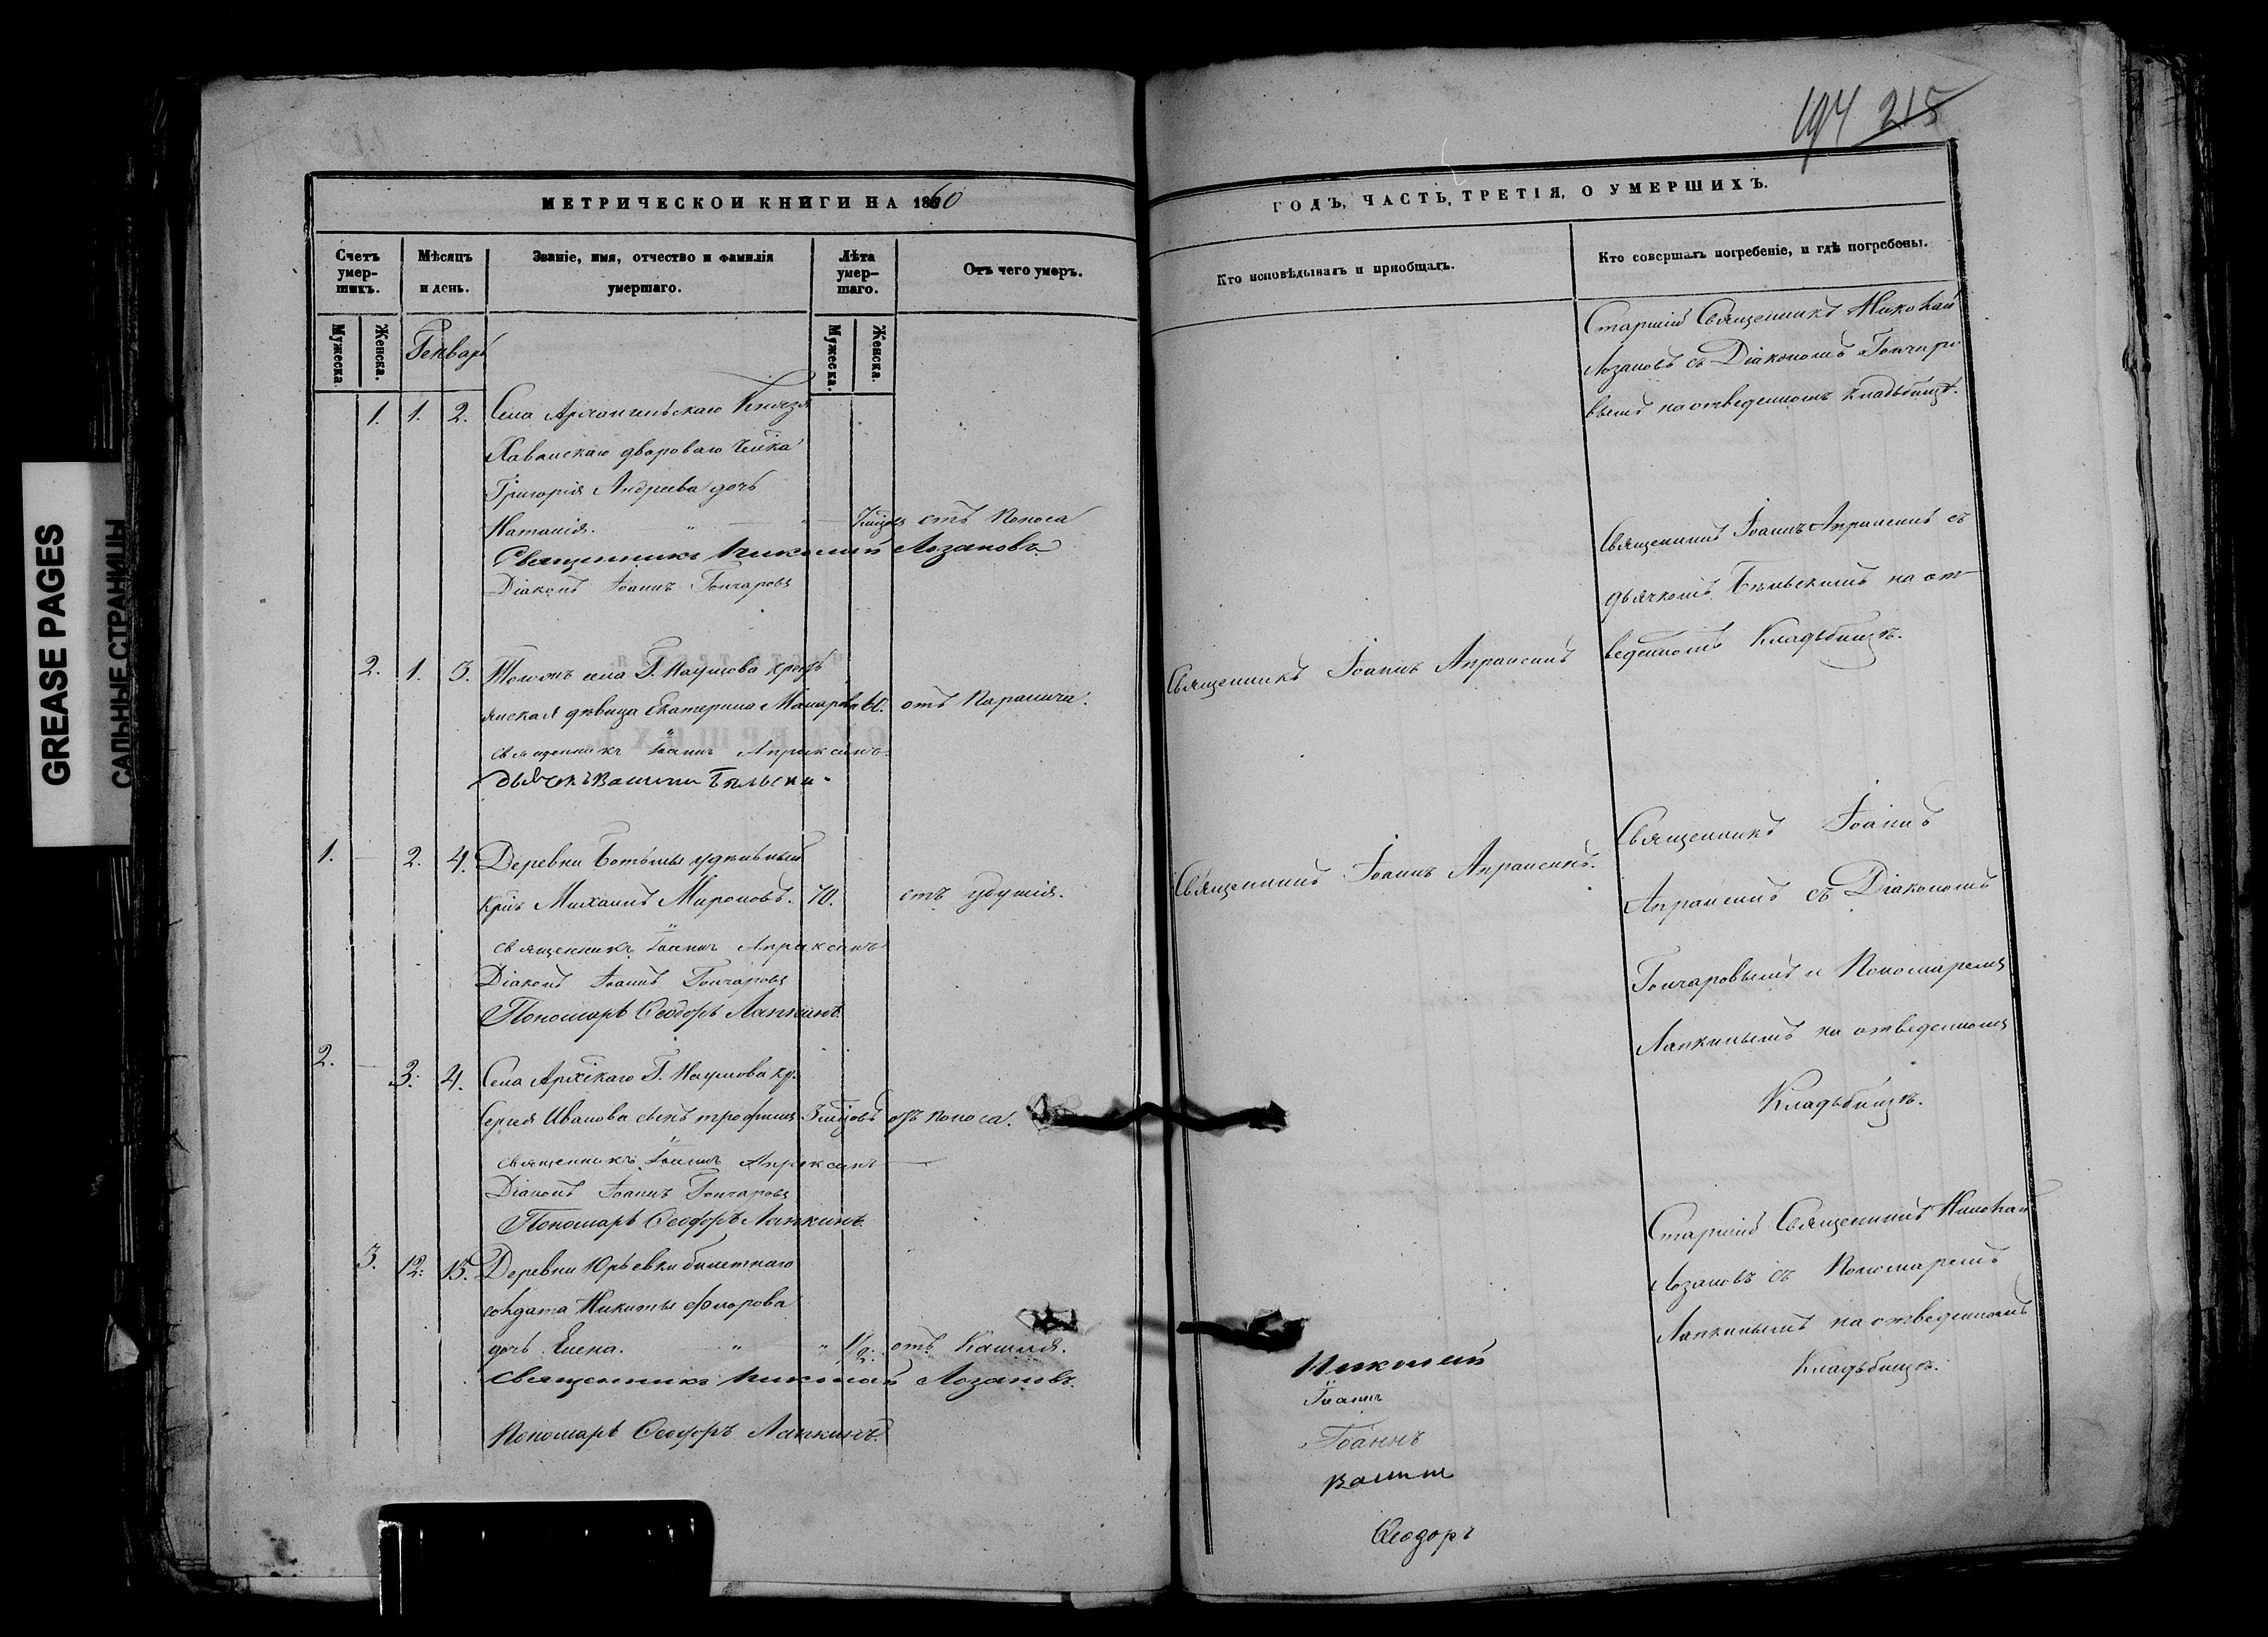 194 215
GREASE PAGES
САЛЬНЫЕ СТРАНИЦЫ
МЕТРИЧЕСКОЙ КНИГИ НА 1860
Счетъ умер-шихъ.
Мѣсяцъ и день.
Званіе, имя, отчество и фамилія умершаго.
Лѣта умер-шаго.
Отъ чего умеръ.
Мужеска.
Женска.
Генварь
Мужеска.
Женска.
1. 1. 2. Села Архангельскаго Князя
двороваго челка
Григорія Андреева дочь
Наталія. отъ поноса
Священникъ Николай Лозановъ
Діаконъ Іоаннъ Гончаровъ
2. 1. 3. села Г. Наумова крестъ
янская дѣвица Екатерина 60. отъ Паралича.
священникъ Іоаннъ Апраксинъ
дьячекъ Бѣльски
1. 2. 4. Деревни удѣльный
крнъ Михаилъ Мироновъ. 70. отъ удушія.
священникъ Іоаннъ Апраксинъ
Діаконъ Іоаннъ Гончаровъ
Пономарь Ѳеодоръ Лапкинъ.
2. 3. 4. Села Г. Наумова кр.
Сергея Иванова сынъ трофимъ 3 отъ поноса.
священникъ Іоаннъ Апраксинъ
Діаконъ Іоаннъ Гончаровъ
Пономарь Ѳеодоръ Лапкинъ.
3. 12. 15. Деревни Юрьевки билетнаго
солдата Никиты
дочь Елена. 1/2. отъ Кашля.
Священникъ Николай Лозановъ.
Пономарь Ѳеодоръ Лапкинъ.
ГОДЪ, ЧАСТЬ ТРЕТІЯ, О УМЕРШИХЪ.
Кто исповѣдывалъ и пріобщалъ.
Кто совершалъ погребеніе, и гдѣ погребены.
Старшій Священникъ Николай
Лозановъ съ Діакономъ Гончаро
вымъ на отведенномъ кладьбищѣ.
Священникъ Іоаннъ Апраксинъ съ
дьячкомъ Бѣльскимъ на от
Священникъ Іоаннъ Апраксинъ
веденномъ Кладьбищѣ.
Священникъ Іоаннъ
Священникъ Іоаннъ Апраксинъ.
Апраксинъ съ Діакономъ
Гончаровымъ и Пономаремъ
Лапкинымъ на отведенномъ
Кладьбищѣ.
Старшій Священникъ Николай
Лозановъ съ Пономаремъ
Лапкинымъ на отведенномъ
Кладьбищѣ.
Николай
Іоаннъ
Іоаннъ
Ѳеодоръ